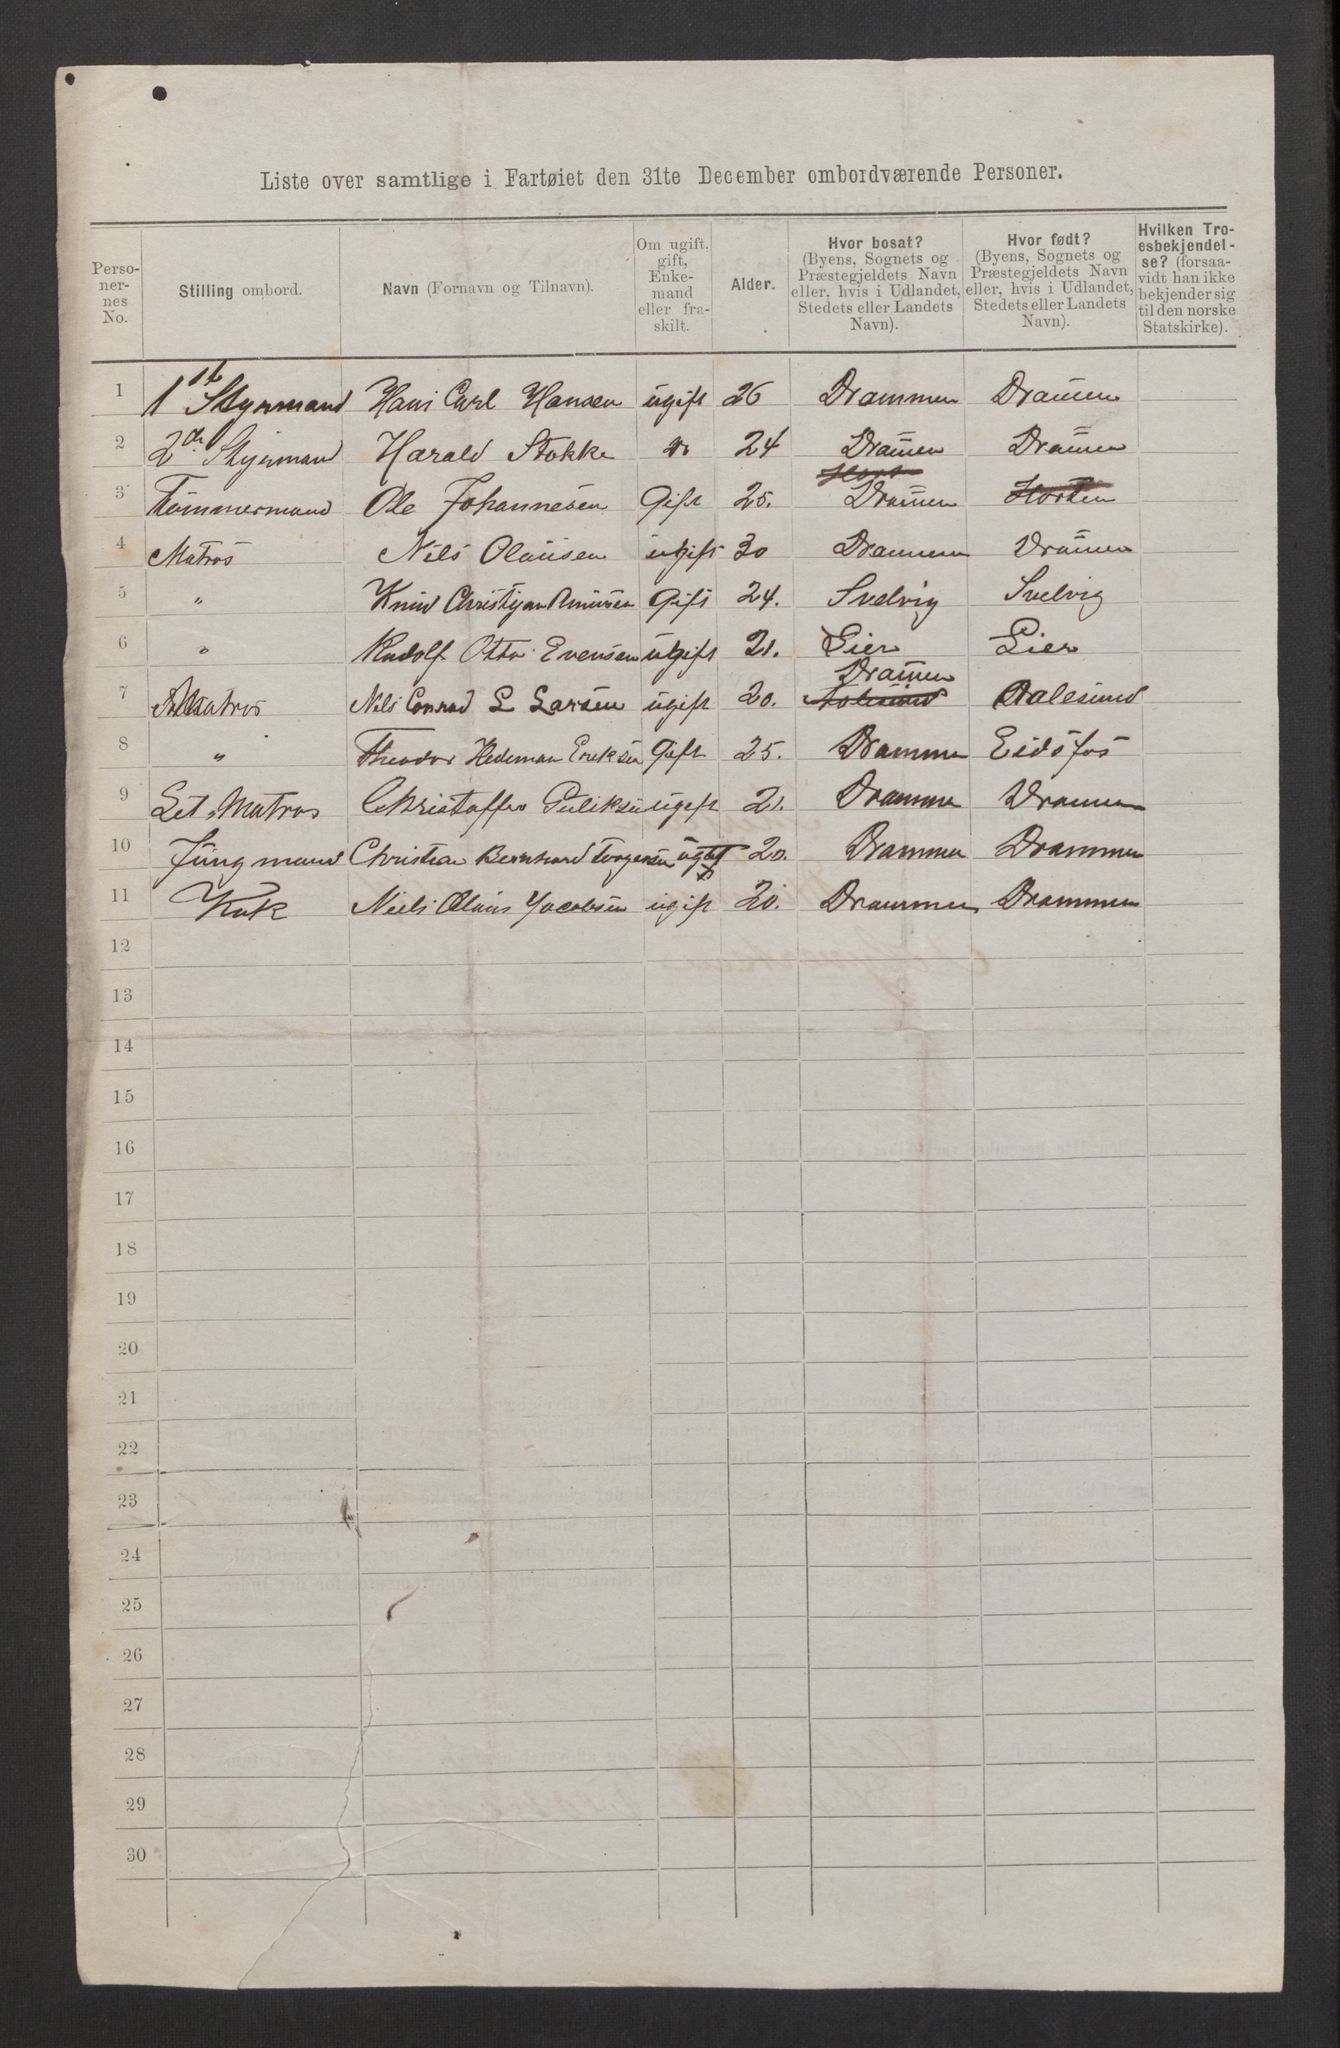 Liste over samtlige i Fartøiet den 31te December ombordværende Personer.
Perso-
ner-
nes
No.
Stilling ombord.
Navn (Fornavn og Tilnavn).
Om ugift,
gift,
Enke-
mand
eller fra-
skilt.
Alder.
Hvor bosat?
(Byens, Sognets og
Præstegjeldets Navn
eller, hvis i Udlandet,
Stedets eller Landets
Navn).
Hvor født?
(Byens, Sognets og
Præstegjeldets Navn
eller, hvis i Udlandet,
Stedets eller Landets
Navn).
Hvilken Tro-
esbekjendel-
se? (forsaa-
vidt han ikke
bekjender sig
til den norske
Statskirke).
1 1st Styrmand Hans Carl Hansen ugift 26 Drammen Dramen
2 2de Styrmand Harald Stokke do 24 Dramen Dramen
Hort
3 Tömmermand Ole Johannesen Gift 25. Dramen Horten
4 Matros Nils Olausen ugift 30 Drammen Dramen
5 " Knud Christjan Gift 24. Svelvig Svelvig
6 " Rudolf Otto Evensen ugift 21. Lier Lier
Dramen
7 Matros Nils Conrad L Larsen ugift 20. Aalesund Aalesund
8 " Theodor Hedeman Eriksen Gift 25. Drammen Eidsfos
9 Let. Matros Christoffer Guliksen ugift 21. Dramme Dramen
10 Jüngmand Christian Bernhard Torgersen ugift 20. Drammen Drammen
11 Kok Niels Olaus Jacobsen ugift 20. Drammen Drammen
12
13
14
15
16
17
18
19
20
21
22
23
24
25
26
27
28
29
30